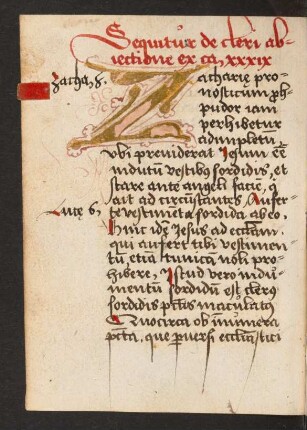 Sequitur de cleri ab-
iectione ex ca. xxxix
Zacha. 3.
Zacharię pro-
nosticum proh
pudor iam
perhibetur
adimpletū
vbi preuiderat Jesum eē
indutū vestibus sordidis, et
stare ante angeli faciē, q
ait ad circūstantes, Aufer-
te vestimēta sordida ab eo,
Lucę 6,
Hinc idē Jesus ad ecclīam.
qui aufert tibi vestimen-
tū, etiā tunicā noli pro-
hibere, Istud vero indu-
mentū sordidū est clerus
sordidis pctīs maculatus
Quocirca ob innumera
pctā, que peruersi ecclīastici